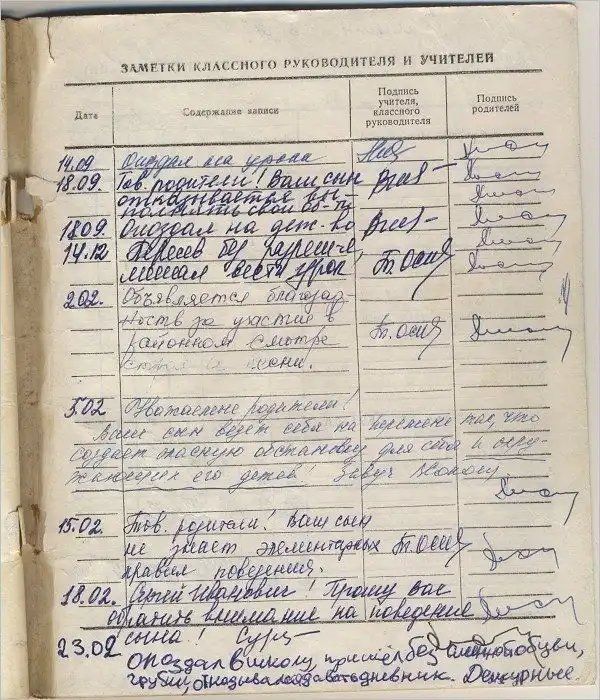 ЗАМЕТКИ КЛАССНОГО РУКОВОДИТЕЛЯ И УЧИТЕЛЕЙ
Дата
Содержание записи
Подпись учителя, классного руководителя
Подпись родителей
14.09 Опоздал на урока
18.09. Тов. родители! Ваш сын
отказывается вы-
полнять свои об-ти
18.09 Опоздал на деж-во
14.12 Пересев без разреше-я,
мешал вести урок Бр. Осип
2.02. Объявляется благодар-
ность за участие в
районном смотре Бр. Осип
строя и песни.
5.02 Уважаемые родители!
Ваш сын ведет себя на перемене так, что
создает опасную обстановку для себя и окру-
жающих его детей! Завуч
15.02. Тов. родители! Ваш сын
не знает элементарных Бр. Осип
правил поведения.
18.02. Сергей Иванович! Прошу Вас
обратить внимание на поведение
сына!
23.02 Опоздал в школу, пришёл без обуви,
грубил, отказывался давать дневник. Дежурные.